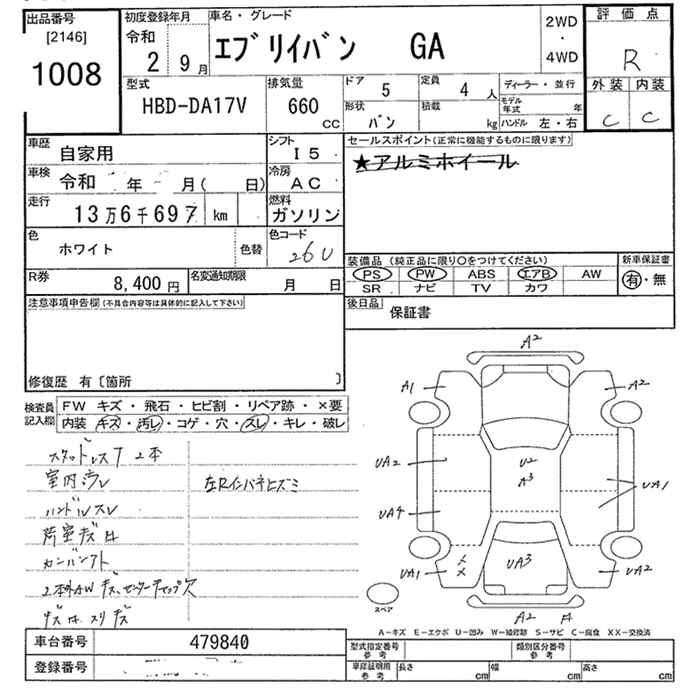 出品番号
[2146]
1008
初度登録年月
令和
2 9月
車名・グレード
エブリイバン GA
2WD
・
4WD
評価点
R
外装 内装
C C
型式
HBD-DA17V
排気量
660
CC
ドア 5
形状 バン
定員 4 人
積載 kg
ディーラー・並行
モデル年式 年
ハンドル 左・右
車歴
自家用
シフト
I5
車検 令和 年 月( 日)
冷房
AC
走行
13万6千697 km
燃料
ガソリン
色
ホワイト
色替
色コード
26U
R券
8,400円
名変通知期限
月 日
セールスポイント(正常に機能するものに限ります)
★アルミホイール
装備品 (純正品に限り〇をつけてください)
PS PW ABS エアB AW
SR ナビ TV カワ
新車保証書
有・無
後日品
保証書
注意事項申告欄(不具合内容等は具体的に記入して下さい)
修復歴 有〔箇所 〕
検査員
記入欄
FW キズ・飛石・ヒビ割・リペア跡・×要
内装 キズ・汚レ・コゲ・穴・スレ・キレ・破レ
スタッドレスT 2本
室内ヨゴレ
ハンドルスレ
荷室キズ
カンバンアト
2本外AW キズ、センターキャップ欠
左Rインパネヒズミ
A2
A1
A2
UA2
U2
A3
UA4
UA1
UA1
UA3
UA2
A2
スペア
A-キズ E-エクボ U-凹み W-補修跡 S-サビ C-腐食 XX-交換済
車台番号
479840
登録番号
型式指定番号
参考
類別区分番号
参考
車庫証明用
参考
長さ cm
幅 cm
高さ cm